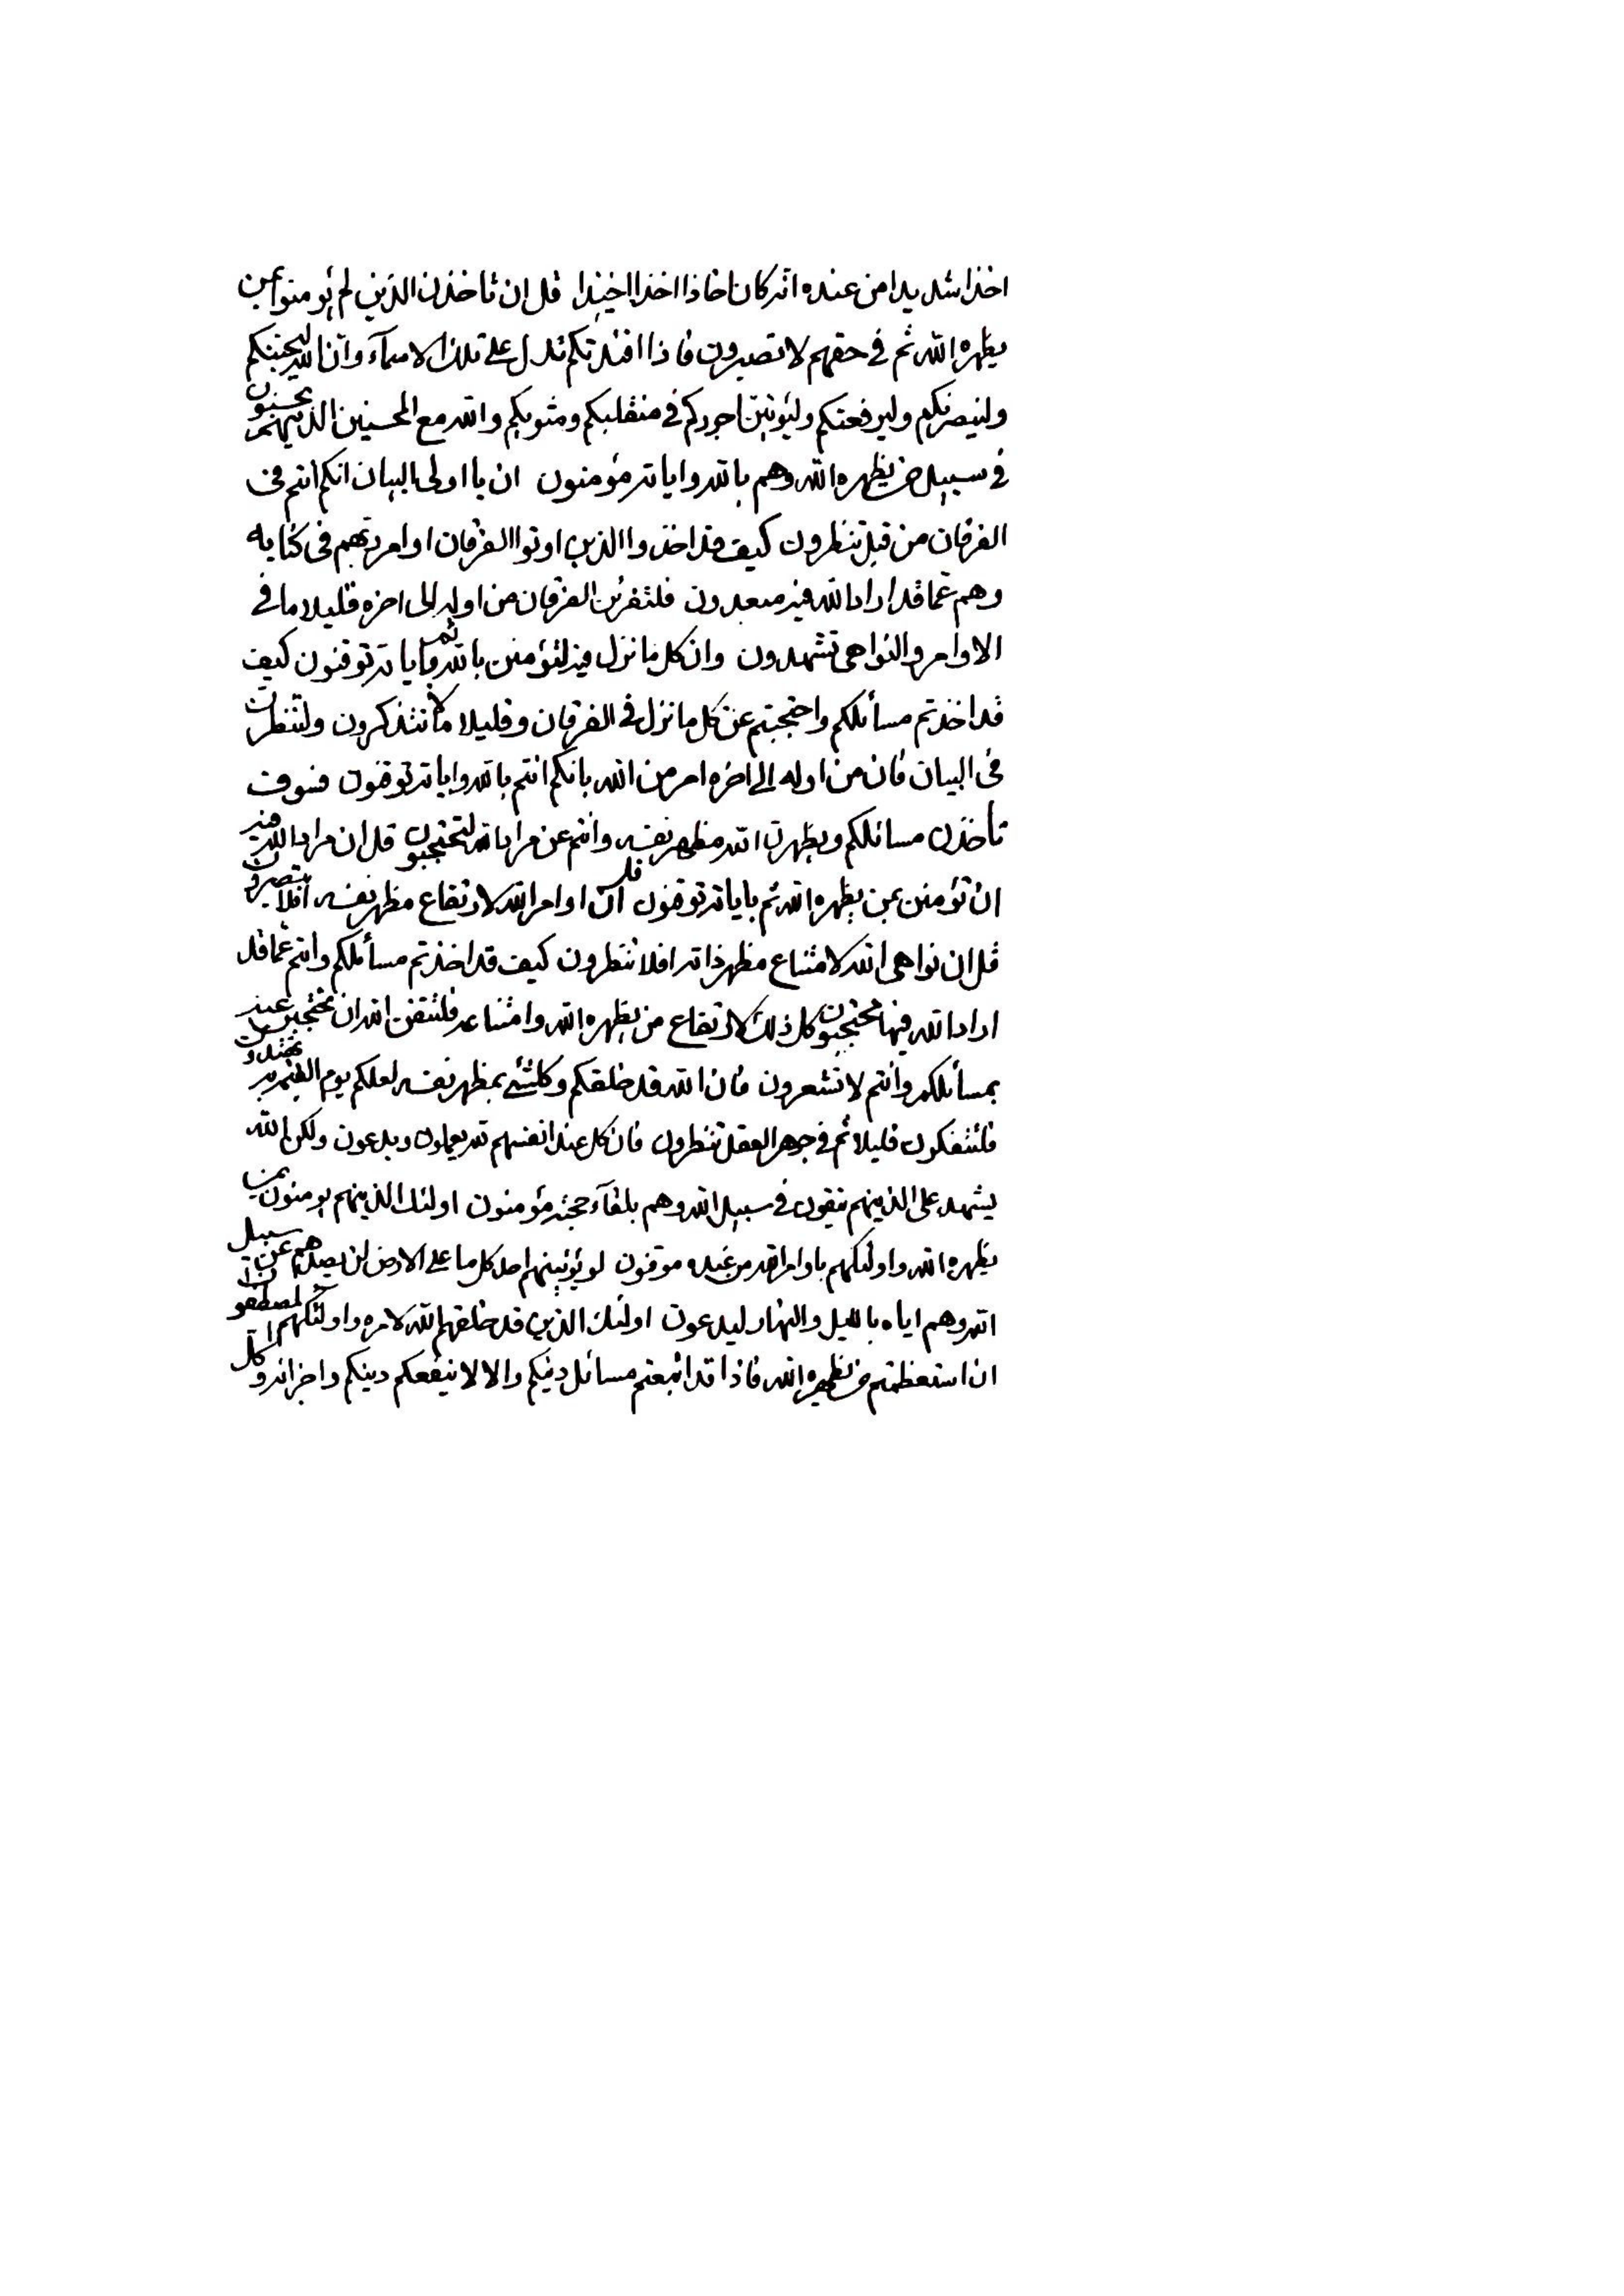 اخذا شديدا من عنده انه كان اخاذا اخذا اخيذا قل ان تاخذن الذين لم يؤمنوا بمن
يظهره الله ثم فى حقهم لا تصبرون فاذا افئدتكم تدل على تلك الاسمآء وان الله ليحبنكم
ولينصرنكم وليرفعنكم وليؤتين اجوركم فى منقلبكم ومثويكم والله مع المحسنين الذينهم يحسنون
فى سبيل من يظهره الله وهم بالله واياته مؤمنون ان يا اولى البيان انكم انتم فى
الفرقان من قبل تنظرون كيف قد اخذوا الذين اوتوا الفرقان اوامر ربهم فى كتابه
وهم عما قد اراد الله فيه مبعدون فلتقرئن الفرقان من اوله الى اخره قليلا ما فى
الاوامر والنواهى تشهدون وان كل ما نزل فيه لتؤمنن بالله ثم باياته توقنون كيف
قد اخذتم مسائلكم واحتجبتم عن كل ما نزل فى الفرقان وقليلا ما تتذكرون ولتنظرن
فى البيان فان من اوله الى اخره امر من الله بانكم انتم بالله واياته توقنون فسوف
تأخذن مسائلكم ويظهرن الله مظهر نفسه وانتم عن مراد الله لتحتجبون قل ان مراد الله فيه
ان تؤمنن بمن يظهره الله ثم باياته توقنون قل ان اوامر الله لارتفاع مظهر نفسه افلا تبصرون
قل ان نواهى الله لامتناع مظهر ذاته افلا تنظرون كيف قد اخذتم مسائلكم وانتم عما قد
اراد الله فيها محتجبون كل ذلك لارتفاع من يظهره الله وامتناعه فلتتقن الله ان تحتجبن عنه
بمسائلكم وانتم لا تشعرون فان الله قد خلقكم وكلشئ بمظهر نفسه لعلكم يوم القيمة به تهتدون
فلتتفكرون قليلا ثم فى جوهر العقل تنظرون فان كل عند انفسهم لله يعملون ويدعون ولكن الله
يشهد على الذينهم يتقون فى سبيل الله وهم بلقآء حجته مؤمنون اولئك الذينهم يؤمنون بمن
يظهره الله واولئكهم باوامر الله من عنده موقنون لو يؤتينهم احد كل ما على الارض لن يصدنهم عن سبيل
الله وهم اياه بالليل والنهار ليدعون اولئك الذين قد خلقهم الله لامره واولئكهم المصطفون
ان استعظمتم من يظهره الله فاذا قد اتبعتم مسائل دينكم والا لا ينفعكم دينكم واجزائه وكل